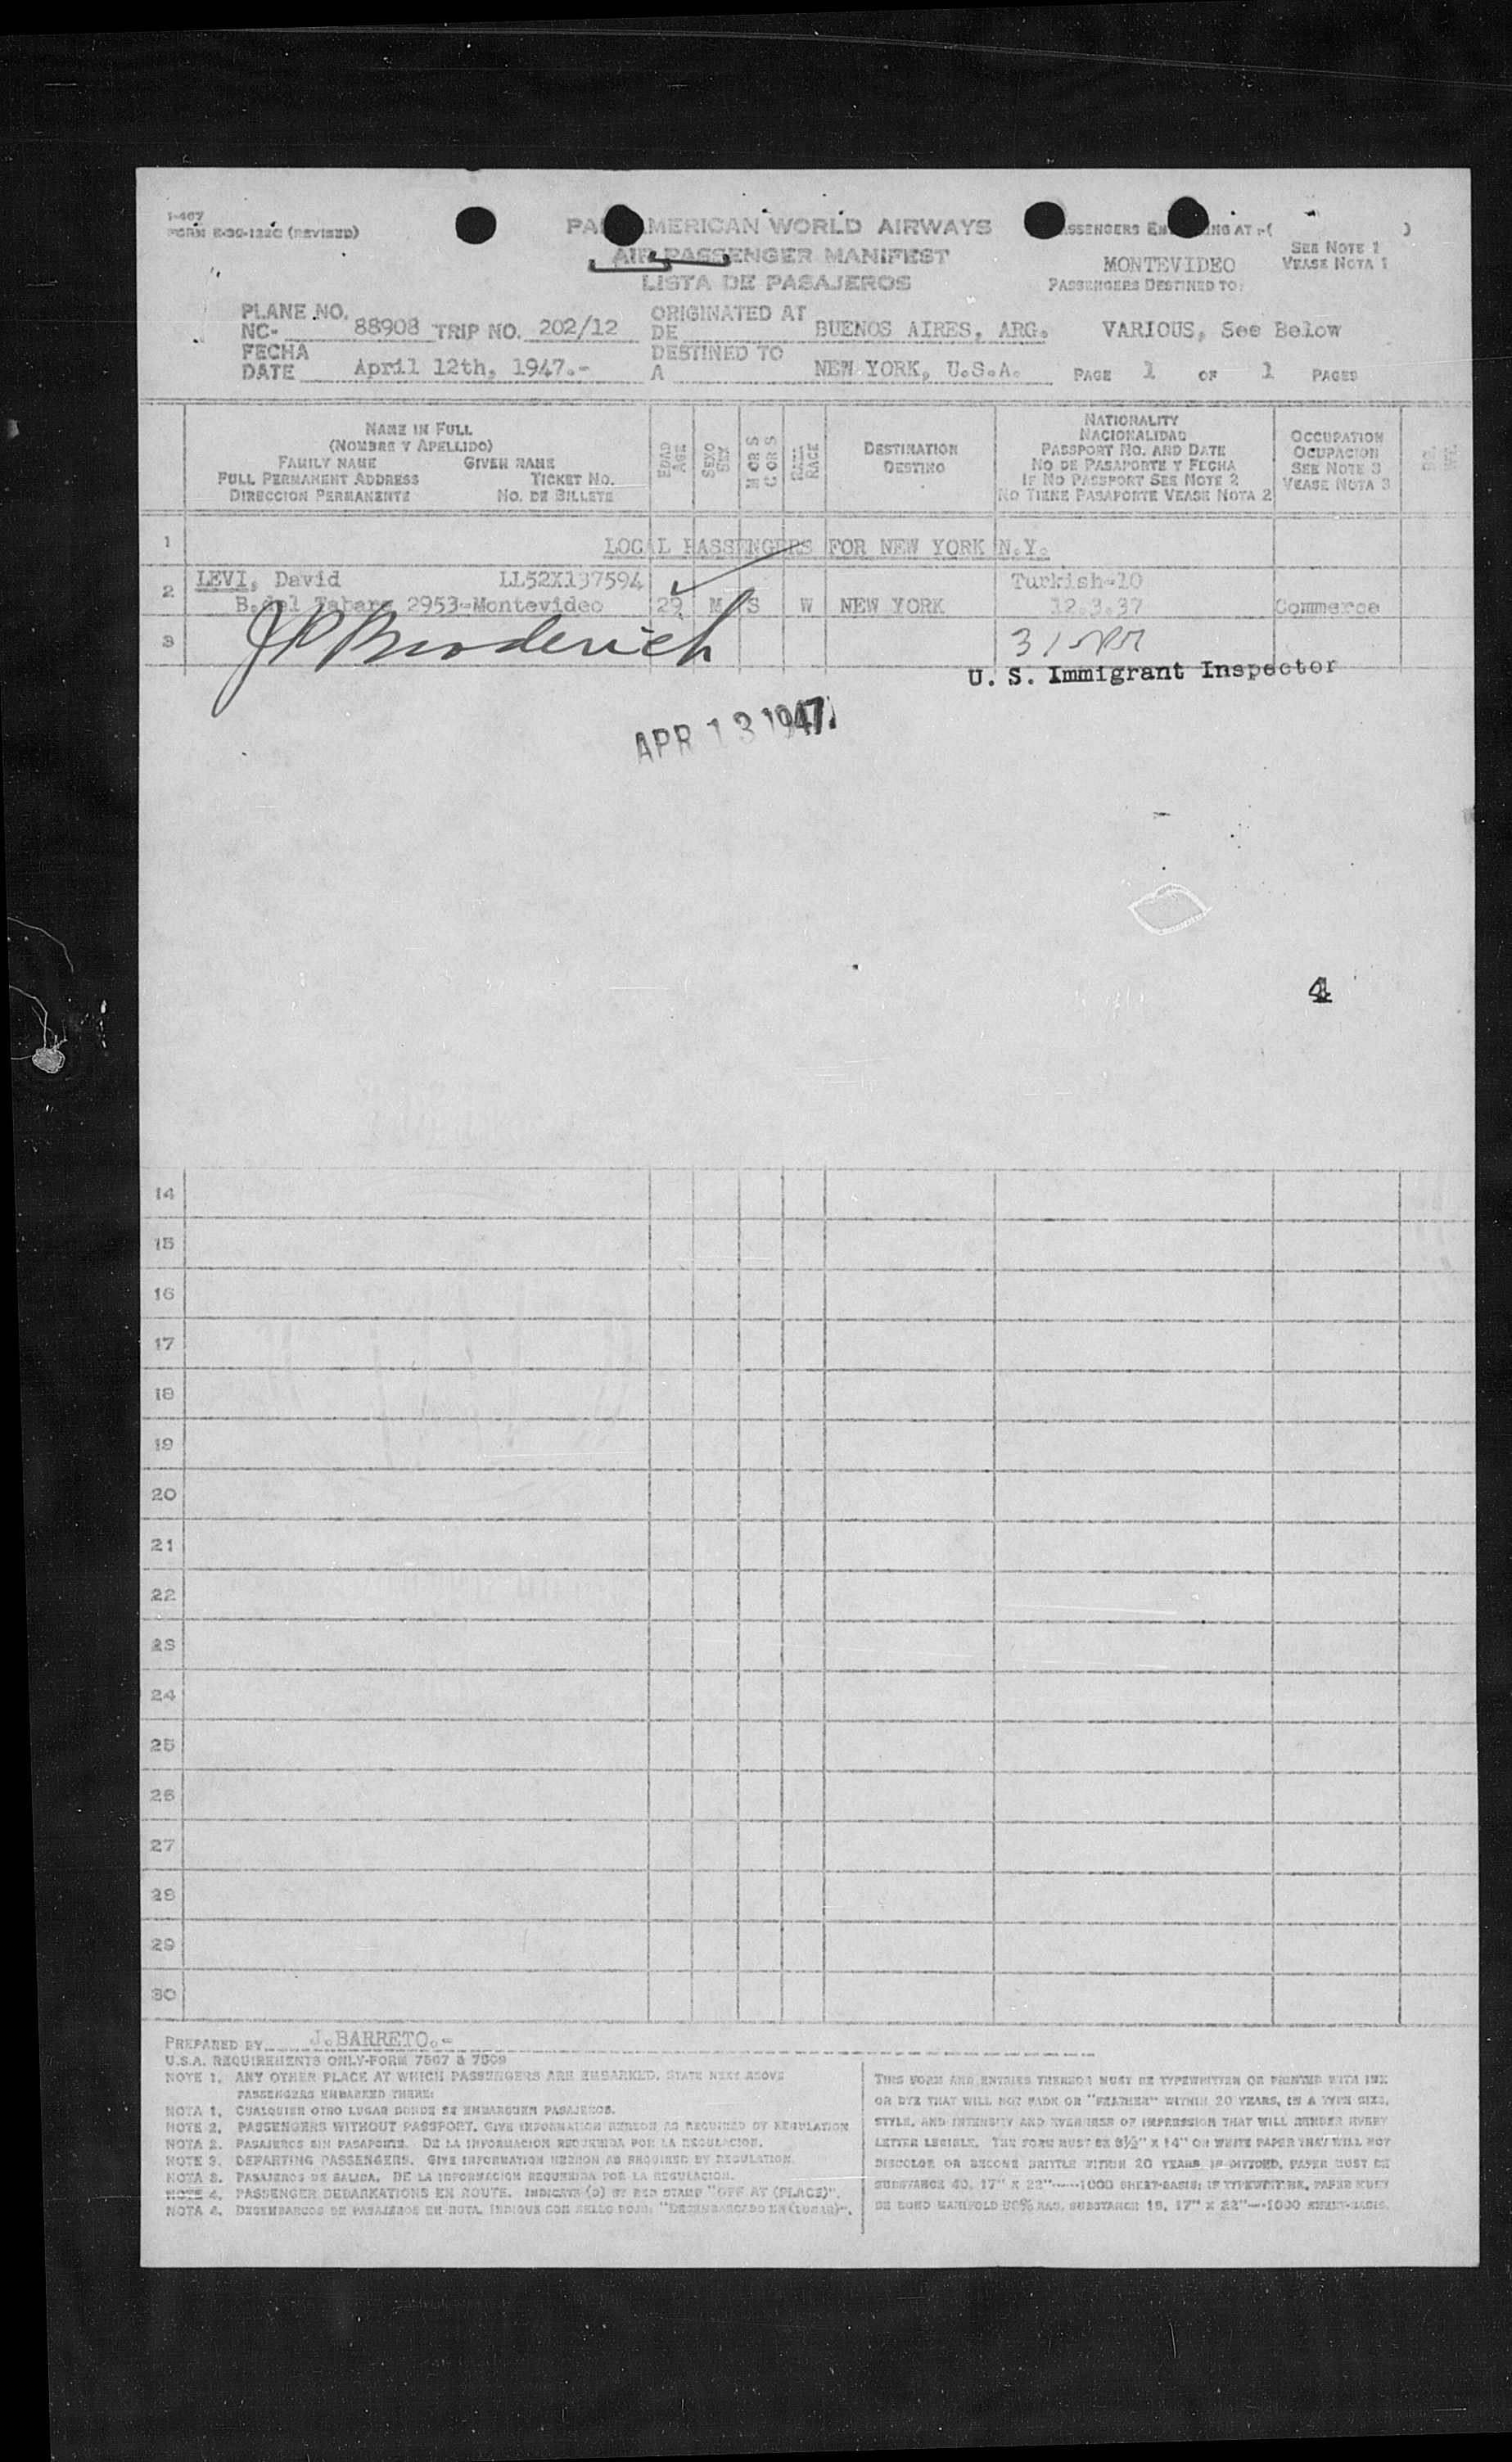 I-467
FORM E-30-122C (REVISED)
PAN AMERICAN WORLD AIRWAYS
AIR PASSENGER MANIFEST
LISTA DE PASAJEROS
PASSENGERS EMBARKING AT :-( )
SEE NOTE 1
VEASE NOTA 1
MONTEVIDEO
PASSENGERS DESTINED TO:
PLANE NO.
NC- 88908 TRIP NO. 202/12
ORIGINATED AT
DE BUENOS AIRES, ARG.
VARIOUS, See Below
FECHA
DATE April 12th, 1947.-
DESTINED TO
A NEW YORK, U.S.A.
PAGE 1 OF 1 PAGES
NAME IN FULL
(NOMBRE Y APELLIDO)
FAMILY NAME GIVEN NAME
FULL PERMANENT ADDRESS TICKET NO.
DIRECCION PERMANENTE NO. DE BILLETE
EDAD
AGE
SEXO
SEX
M OR S
C OR S
RAZA
RACE
DESTINATION
DESTINO
NATIONALITY
NACIONALIDAD
PASSPORT NO. AND DATE
NO DE PASAPORTE Y FECHA
IF NO PASSPORT SEE NOTE 2
NO TIENE PASAPORTE VEASE NOTA 2
OCCUPATION
OCUPACION
SEE NOTE 3
VEASE NOTA 3
1 LOCAL PASSENGERS FOR NEW YORK N.Y.
2 LEVI, David LL52X137594 Turkish-10
B.del Tabare 2953-Montevideo 29 M S W NEW YORK 12.3.37 Commerce
3
U. S. Immigrant Inspector
APR 13 1947
4
14
15
16
17
18
19
20
21
22
23
24
25
26
27
28
29
30
PREPARED BY J.BARRETO.-
U.S.A. REQUIREMENTS ONLY-FORM 7507 & 7509
NOTE 1. ANY OTHER PLACE AT WHICH PASSENGERS ARE EMBARKED, STATE NEXT ABOVE
PASSENGERS EMBARKED THERE:
NOTA 1. CUALQUIER OTRO LUGAR DONDE SE EMBARQUEN PASAJEROS.
NOTE 2. PASSENGERS WITHOUT PASSPORT. GIVE INFORMATION HEREON AS REQUIRED BY REGULATION
NOTA 2. PASAJEROS SIN PASAPORTE. DE LA INFORMACION REQUERIDA POR LA REGULACION.
NOTE 3. DEPARTING PASSENGERS. GIVE INFORMATION HEREON AS REQUIRED BY REGULATION.
NOTA 3. PASAJEROS DE SALIDA. DE LA INFORMACION REQUERIDA POR LA REGULACION.
NOTE 4. PASSENGER DEBARKATIONS EN ROUTE. INDICATE (D) BY RED STAMP "OFF AT (PLACE)".
NOTA 4. DESEMBARCOS DE PASAJEROS EN RUTA. INDIQUE CON SELLO ROJO: "DESEMBARCADO EN (LUGAR)".
THIS FORM AND ENTRIES THEREON MUST BE TYPEWRITTEN OR PRINTED WITH INK
OR DYE THAT WILL NOT FADE OR "FEATHER" WITHIN 20 YEARS, IN A TYPE SIZE,
STYLE, AND INTENSITY AND EVENNESS OF IMPRESSION THAT WILL RENDER EVERY
LETTER LEGIBLE. THE FORM MUST BE 8½" X 14" ON WHITE PAPER THAT WILL NOT
DISCOLOR OR BECOME BRITTLE WITHIN 20 YEARS. IF DITTOED, PAPER MUST BE
SUBSTANCE 40, 17" X 22"-----1000 SHEET-BASIS: IF TYPEWRITTEN, PAPER MUST
BE BOND MANIFOLD 50% RAG, SUBSTANCE 18, 17" X 22"---1000 SHEET-BASIS.